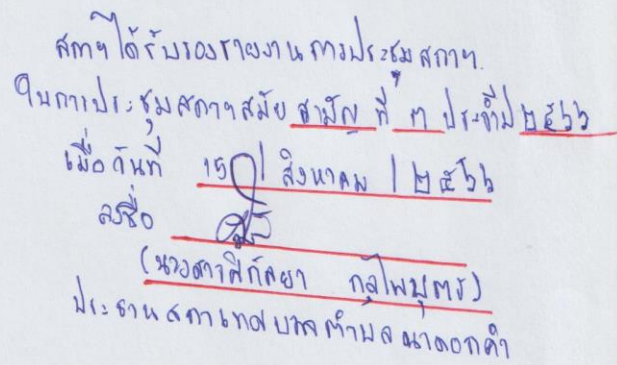 สภาฯ ได้รับรองรายงานการประชุมสภาฯ
ในการประชุมสภาฯ สมัย สามัญ ที่ ๓ ประจำปี ๒๕๖๖
เมื่อวันที่ 15 / สิงหาคม / ๒๕๖๖
ลงชื่อ
(นางสาวศิกัลยา กุลไพบุตร)
ประธานสภาเทศบาลตำบลนาดอกคำ